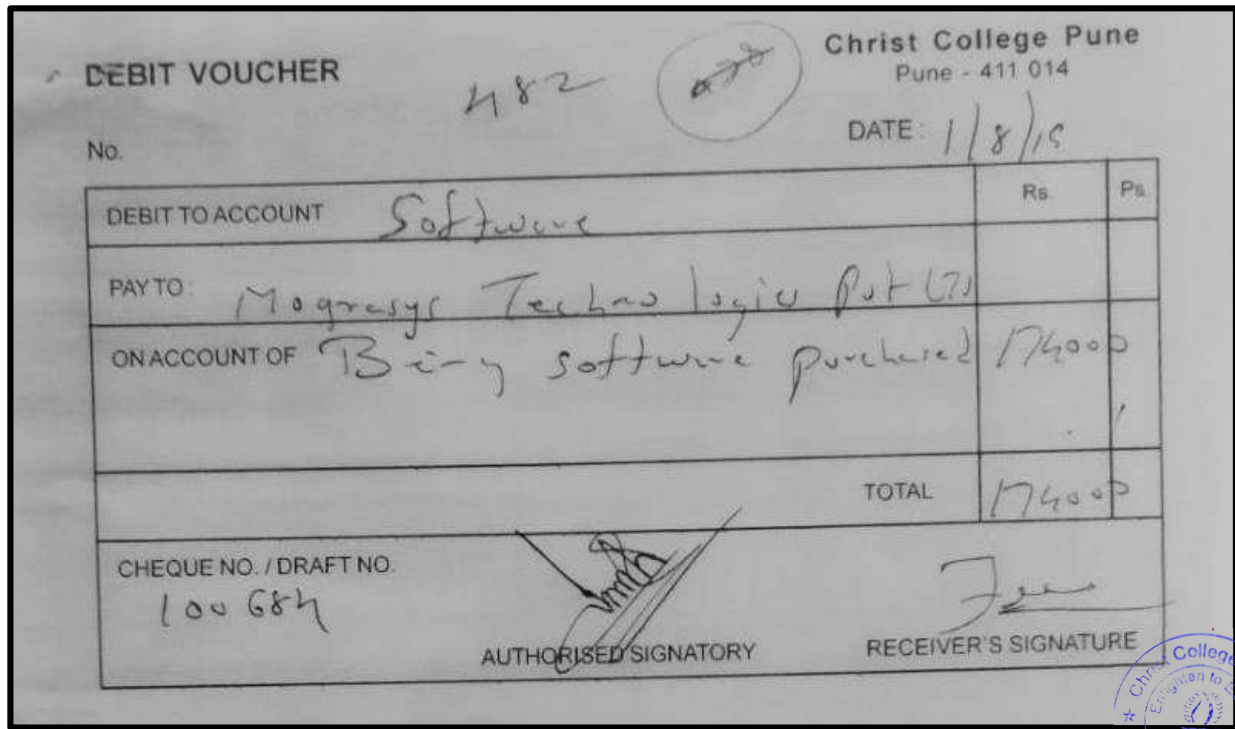 Christ College Pune
Pune - 411 014
DEBIT VOUCHER
482
No.
DATE: 1/8/15
Rs. Ps.
DEBIT TO ACCOUNT Software
PAY TO: Mogresys Technologies Pvt LTD
ON ACCOUNT OF Being software purchased 174000
TOTAL 174000
CHEQUE NO. / DRAFT NO.
100684
AUTHORISED SIGNATORY
RECEIVER'S SIGNATURE
Christ College
Enlighten to